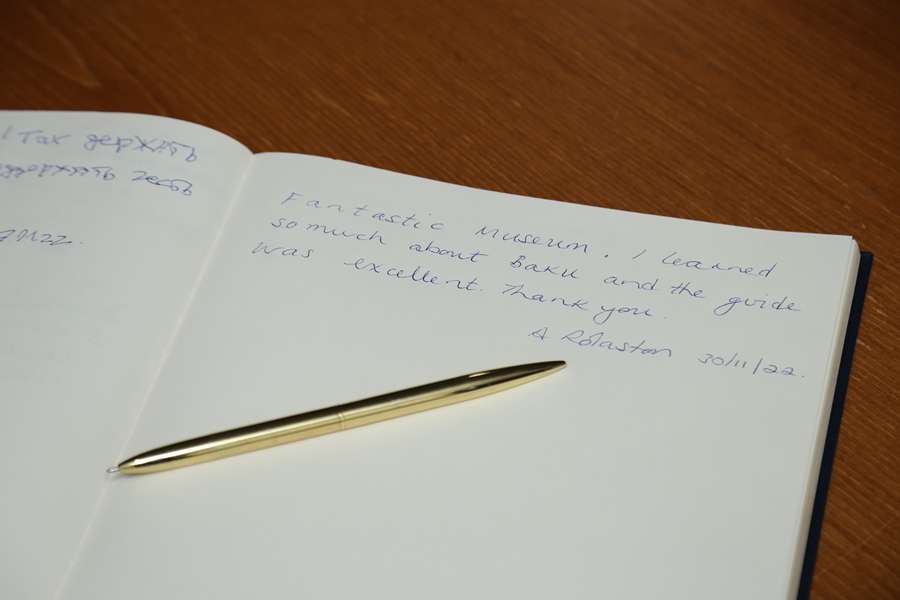 Так держать
Fantastic Museum. I learned
so much about Baku and the guide
was excellent. Thank you.
A Rolaston 30/11/22.